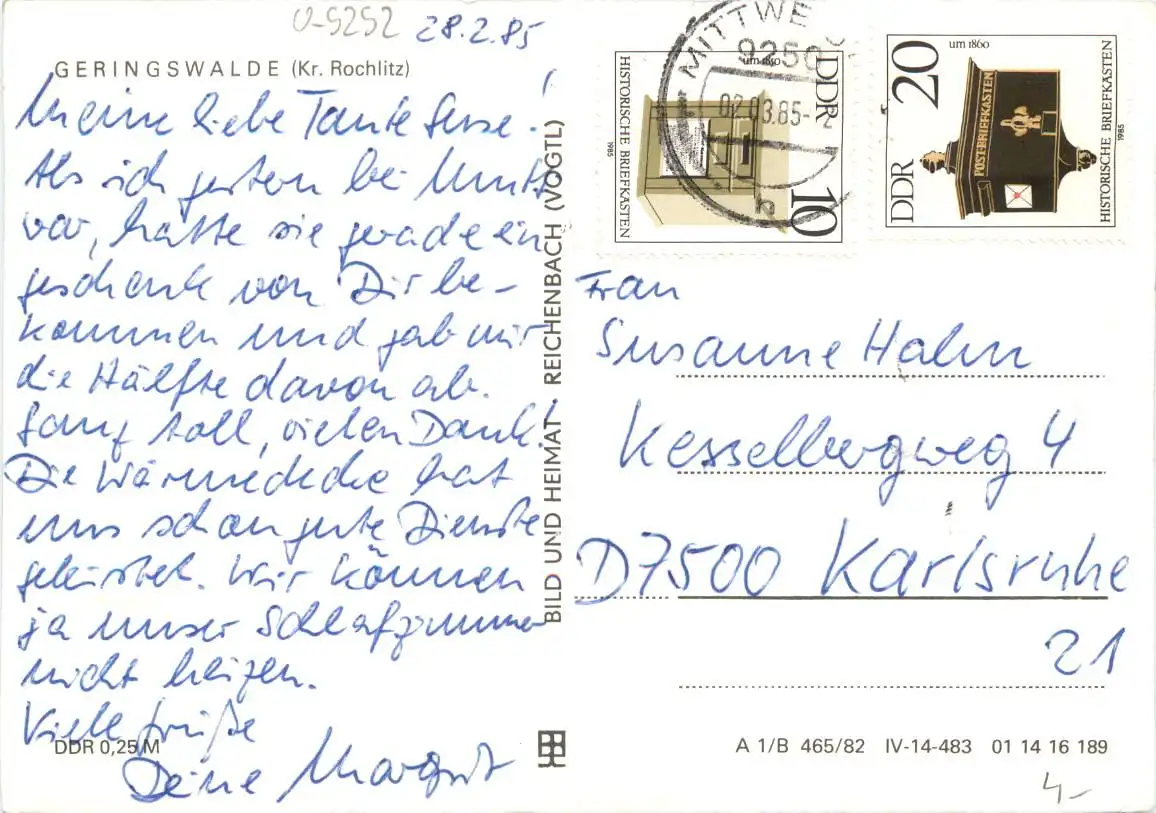 O-9292 28.2.85
GERINGSWALDE (Kr. Rochlitz)
Meine liebe Tante Suse!
Als ich gestern bei Mutti
war, hatte sie gerade ein
Geschenk von Dir be-
kommen und gab mir
die Hälfte davon ab.
Ganz toll, vielen Dank.
Die Wärmedecke hat
uns schon gute Dienste
geleistet. Wir können
ja unser Schlafzimmer
nicht heizen.
Viele Grüße
Deine Margrit
DDR 0,25 M
BILD UND HEIMAT · REICHENBACH (VOGTL)
MITTWE
9250
02.03.85
h
um 1850
DDR
10
HISTORISCHE BRIEFKASTEN
1985
um 1860
DDR 20
POST-BRIEFKASTEN
HISTORISCHE BRIEFKÄSTEN
1985
Frau
Susanne Hahn
Kesselbergweg 4
D7500 Karlsruhe
21
A 1/B 465/82 IV-14-483 01 14 16 189
4,-